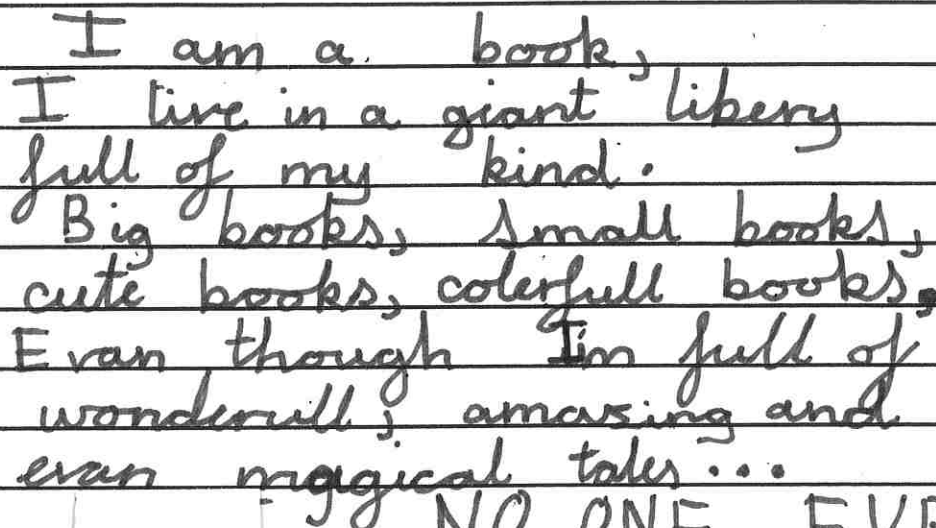 I am a book,
I live in a giant libery
full of my kind.
Big books, small books,
cute books, colerfull books,
Evan though Im full of
wonderull, amasing and
evan magical tales...
NO ONE EVE